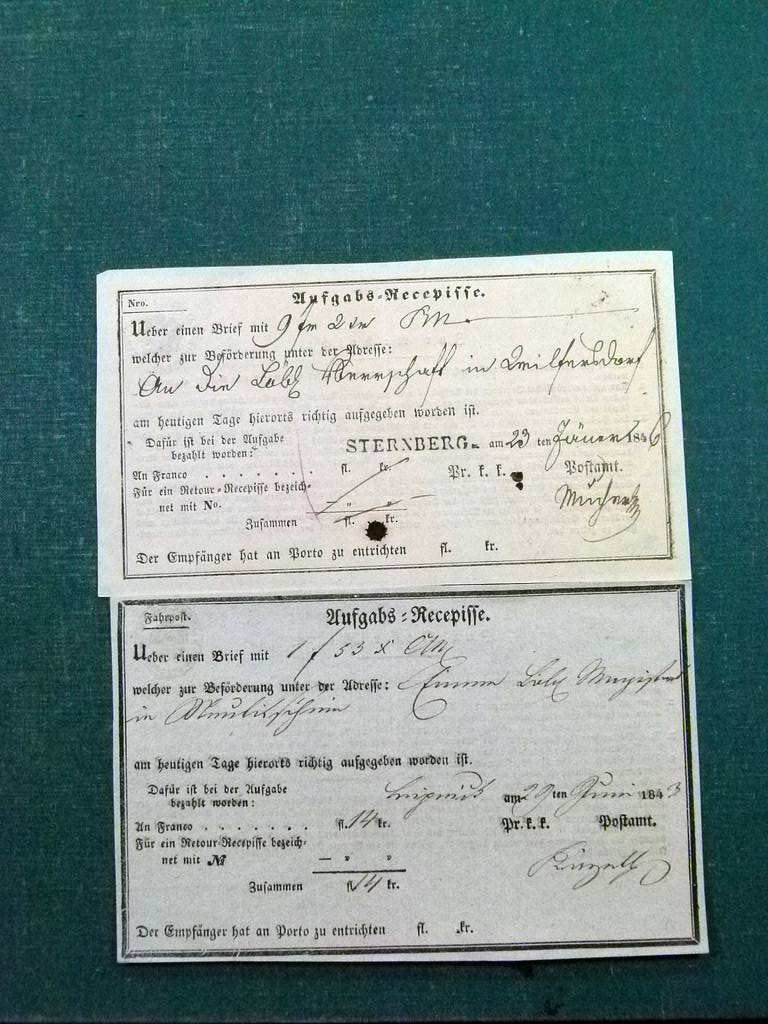 Nro.
Aufgabs-Recepisse.
Ueber einen Brief mit 9 f
welcher zur Beförderung unter der Adresse:
An die Löbl Herrschaft in
am heutigen Tage hierorts richtig aufgegeben worden ist.
Dafür ist bei der Aufgabe
bezahlt worden:
STERNBERG. am 23 ten Jäner 1846
An Franco . . . . . . . fl. kr. Pr. k. k. Postamt.
Für ein Retour-Recepisse bezeich-
net mit No. — " "
Zusammen fl. kr.
Der Empfänger hat an Porto zu entrichten fl. kr.
Fahrpost.
Aufgabs-Recepisse.
Ueber einen Brief mit 1 f 53 x CM
welcher zur Beförderung unter der Adresse: Löbl Magistrat
in
am heutigen Tage hierorts richtig aufgegeben worden ist.
Dafür ist bei der Aufgabe
bezahlt worden:
Leipnick am 29 ten Juni 1843
An Franco . . . . . . . fl. 14 kr. Pr. k. k. Postamt.
Für ein Retour-Recepisse bezeich-
net mit № — " "
Zusammen fl. 14 kr.
Der Empfänger hat an Porto zu entrichten fl. kr.